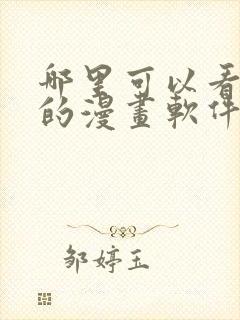 哪里可以看
的漫畫軟件
邹婷玉